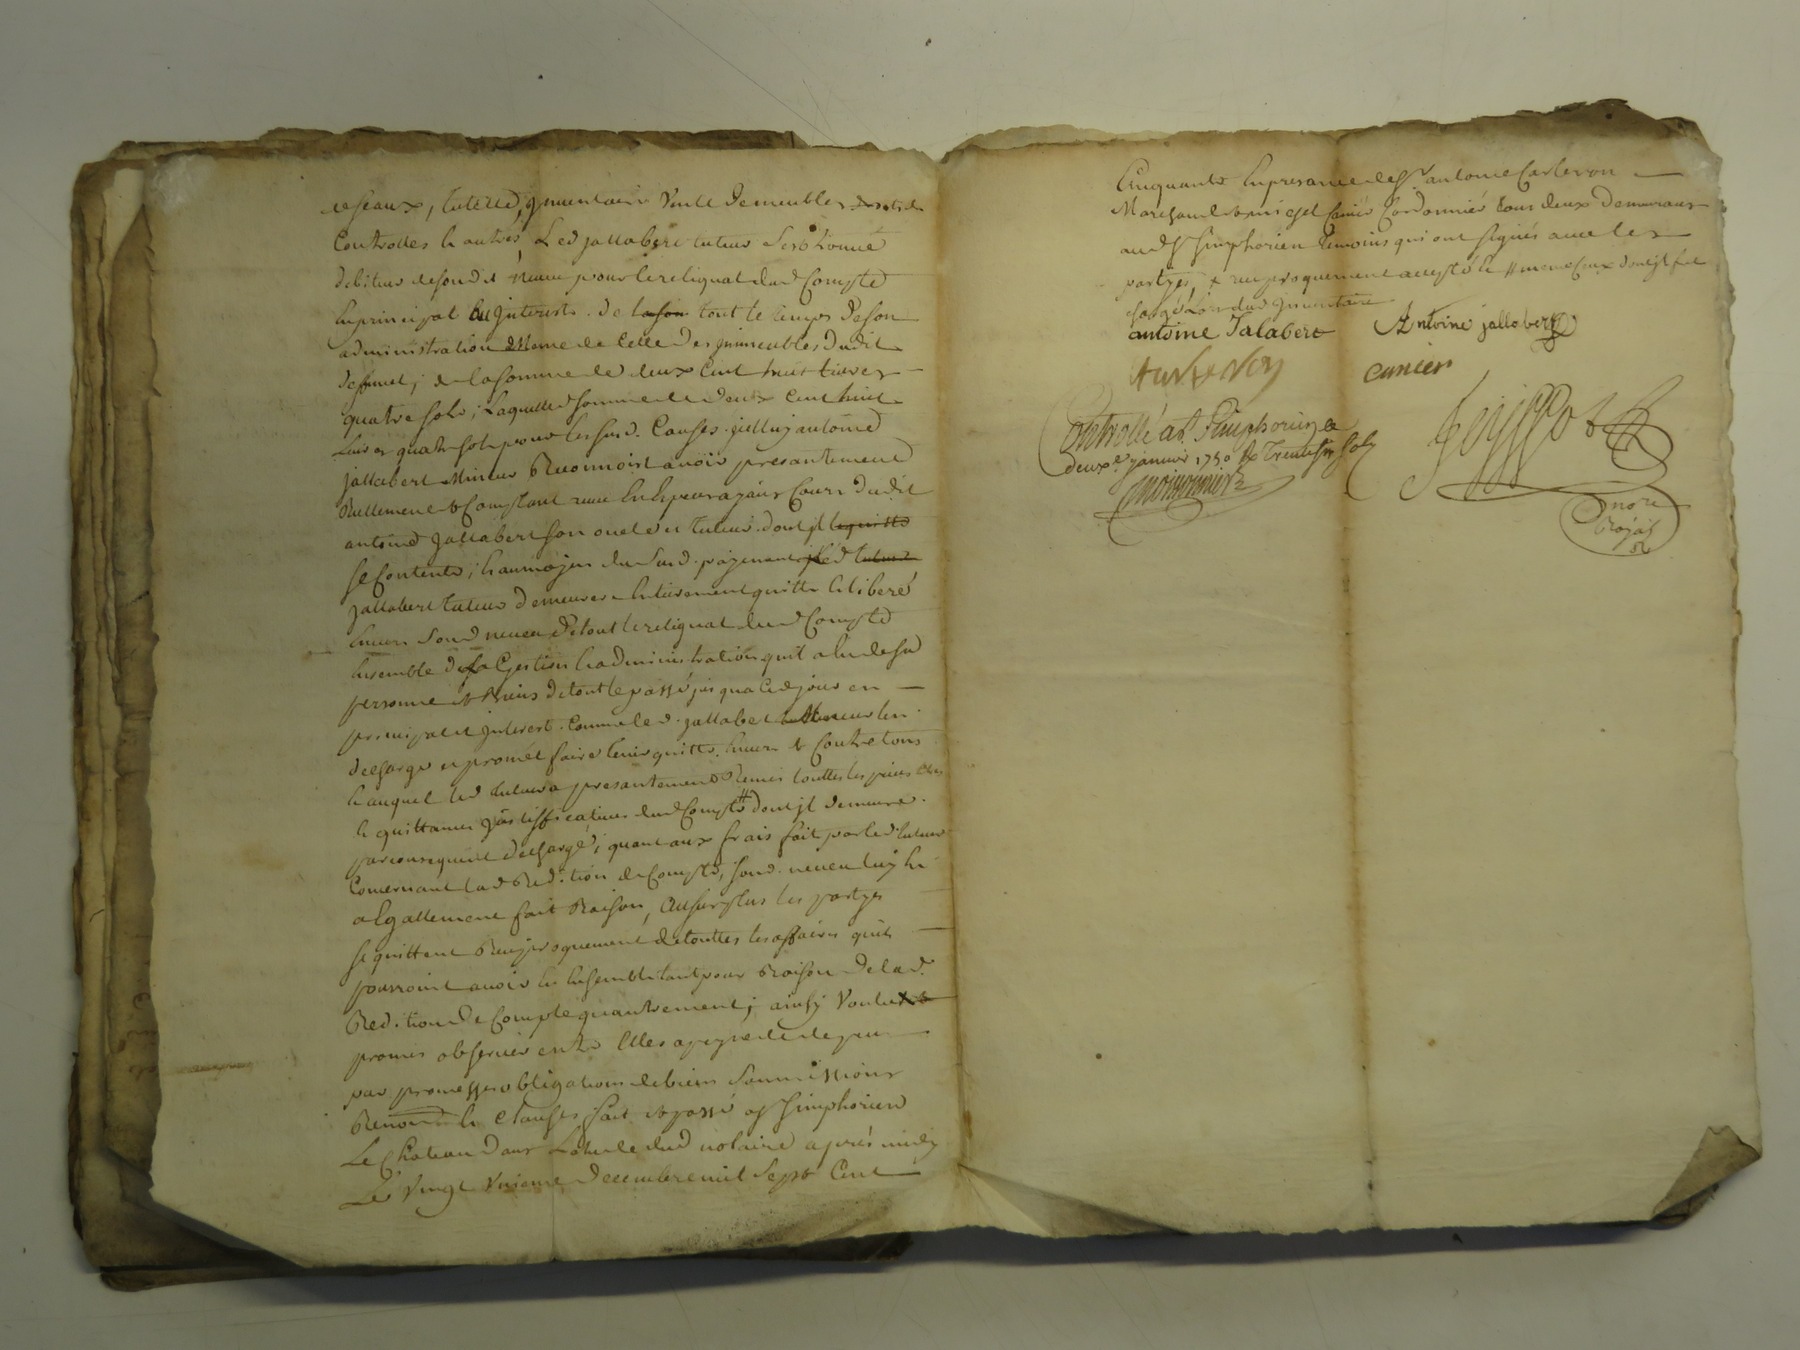 de sceaux, tutelle, jnventaire vente de meubles droits de
Controlles & autres, Led jallabert tuteur sest trouvé
debiteur de son d neveu pour le reliquat dud Compte
en principal & jnterests de lason tout le temps de son
administration mesme de celle des jmmeubles dudit
deffunt, de la somme de deux Cent huit livres
quatre sols, Laquelle somme de deux Cent huit
Livres quatre sols pour les susd. Causes jcelluy antoine
jallabert Mineur Reconnoist avoir presantement
Reellement & Comptant receu en Especes ayans Cours dudit
antoine jallabert son oncle et tuteur dont jl lequitte
se Contente, & au moyen du susd. payement led tuteur
jallabert tuteur demeurera Entierement quitte & liberé
Envers sond neveu de tout le reliquat dud Compte
Ensemble de la Gestion & administration quil a Eu de sa
personne & Biens de tout le passé jusqua Ce jour en
principal et jnterest. Comme led. jallabert Mineur len
decharge et promet faire tenir quitte Envers & Contre tous
& auquel led tuteur a presantement Remis touttes les pieces
& quittances justifficatives dud Compte # dont jl demeure
par consequent dechargé, quant aux frais fait par led. tuteur
Concernant lad Redition de Compte, sond. neveu luy En
a Egallement fait Raison, Au surplus les partyes
se quittent Reciproquement de touttes les affaires quils
pourroint avoir Eu Ensemble tant pour Raison de lad.
Redition de Compte quautrement, ainsy voulu &
promis observer entre Elles a peyne de
par promesses obligations de biens soumissions
Renon & Clauses, fait & passé a St simphorien
Le Chateau dans Letude dud notaire aprés midy
Le vingt Decembre mil sept Cent
Cinquante En presance de Sr antoine Carteron
Marchand & Cunier Cordonnier tous deux demeurans
aud St simphorien temoins qui ont signés avec les
partyes, & reciproquement accepté # meme Ceux dont jl fut
chargé Lors dud jnventaire
antoine Jalabert Antoine jallabert
Carteron cunier
Controllé a St. Simphorien le
deuxe. janvier 1750 Rx Trente six sols
nore
Royal